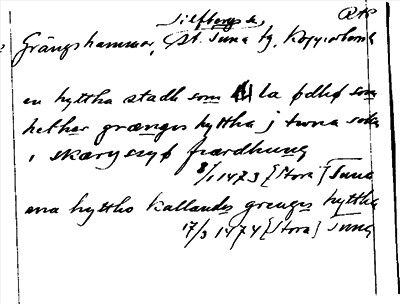 Silfbergs h, RAP
Grängshammar, St. Tuna sg, Kopparb
en hyttha stadh som la ödhö som
hether grænges hyttha j tuna sokn
i skæryszyö frærdhung
8/1 1473 [Stora] Tuna
ena hyttho kallandes grenges hyttha
17/3 1474 [Stora] Tuna